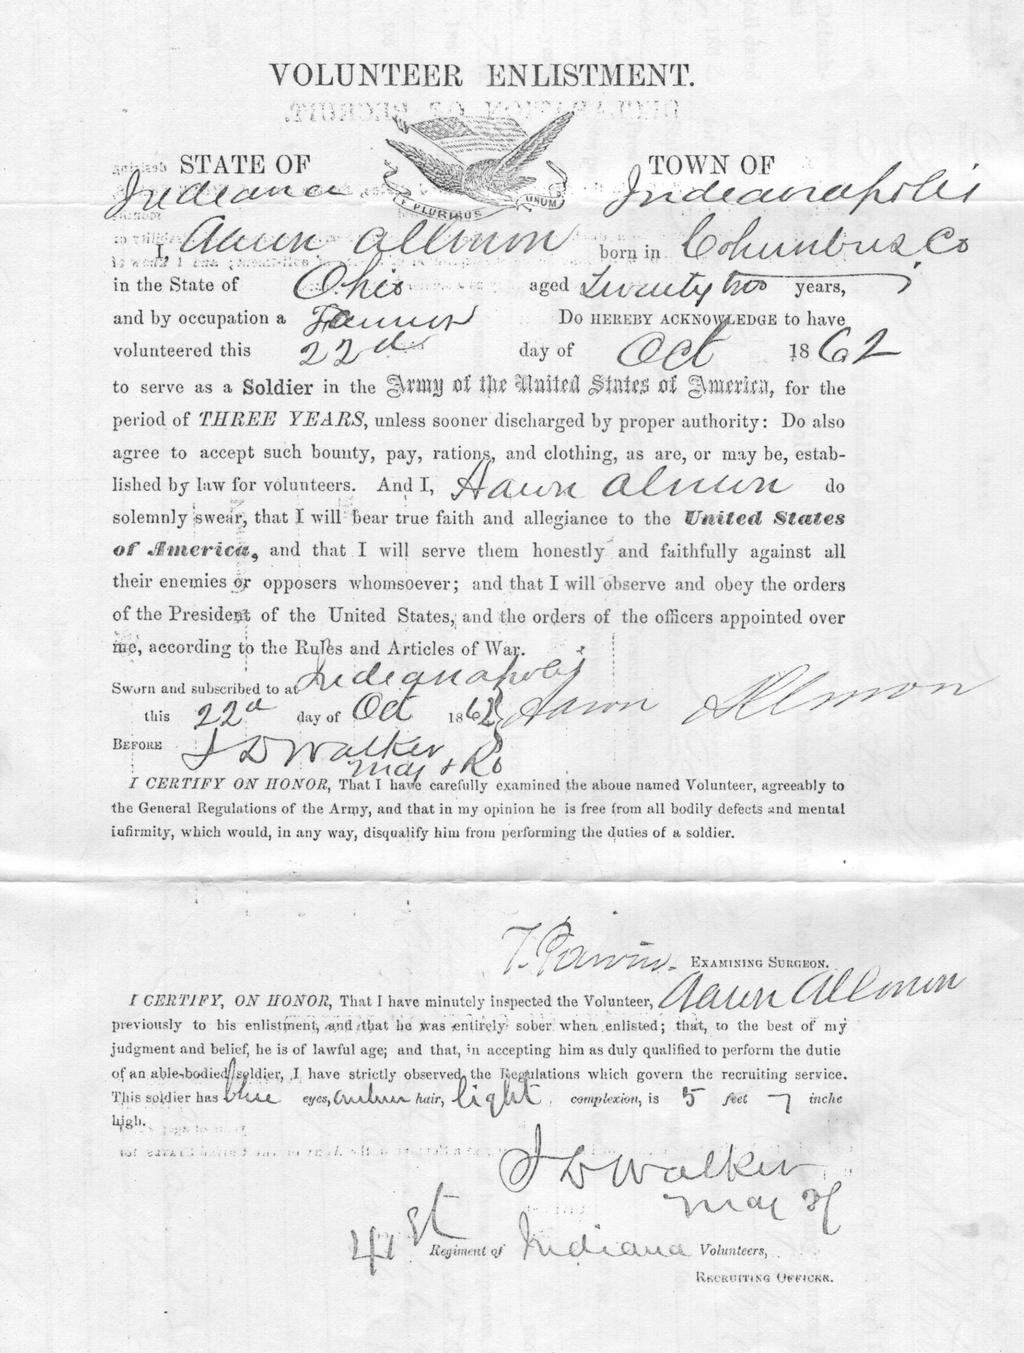 VOLUNTEER ENLISTMENT.
STATE OF TOWN OF
E PLURIBUS UNUM
Indeana Indeanapolis
I, Aaron Allmon born in Columbus Co
in the State of Ohio aged Twenty two years,
and by occupation a Do HEREBY ACKNOWLEDGE to have
volunteered this 22d day of Oct 1862
to serve as a Soldier in the Army of the United States of America, for the
period of THREE YEARS, unless sooner discharged by proper authority: Do also
agree to accept such bounty, pay, rations, and clothing, as are, or may be, estab-
lished by law for volunteers. And I, Aaron Almon do
solemnly swear, that I will bear true faith and allegiance to the United States
of America, and that I will serve them honestly and faithfully against all
their enemies or opposers whomsoever; and that I will observe and obey the orders
of the President of the United States, and the orders of the officers appointed over
me, according to the Rules and Articles of War.
Sworn and subscribed to at Indeanapolis
this 22d day of Oct 1862 Aaron Allmon
BEFORE J D Walker
I CERTIFY ON HONOR, That I have carefully examined the aboue named Volunteer, agreeably to
the General Regulations of the Army, and that in my opinion he is free from all bodily defects and mental
infirmity, which would, in any way, disqualify him from performing the duties of a soldier.
T. Parvin. EXAMINING SURGEON.
I CERTIFY, ON HONOR, That I have minutely inspected the Volunteer, Aaron Allmon
previously to his enlistment, and that he was entirely sober when enlisted; that, to the best of my
judgment and belief, he is of lawful age; and that, in accepting him as duly qualified to perform the dutie
of an able-bodied soldier, I have strictly observed the Regulations which govern the recruiting service.
This soldier has blue eyes, auburn hair, light complexion, is 5 feet 7 inche
high.
J D Walker
Maj
41st Regiment of Indiana Volunteers,
RECRUITING OFFICER.